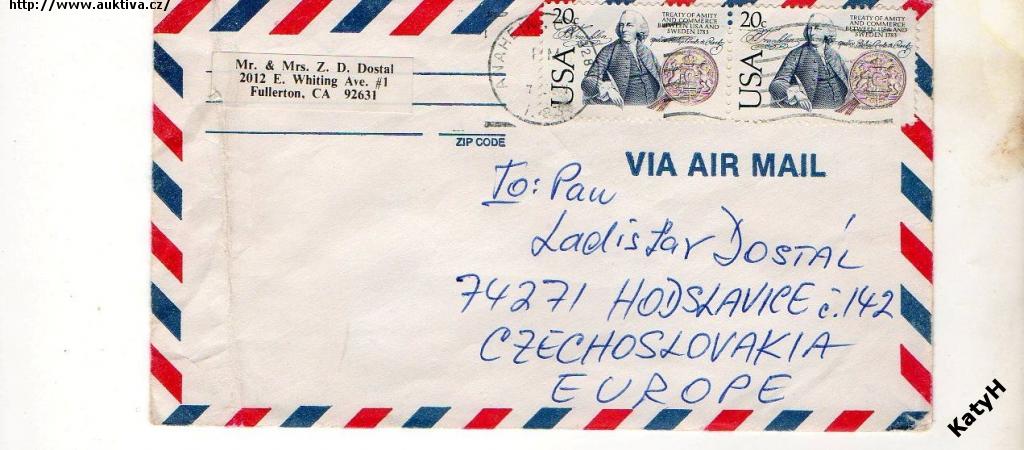 http://www.auktiva.cz/
Mr. & Mrs. Z. D. Dostal
2012 E. Whiting Ave. #1
Fullerton, CA 92631
ZIP CODE
ANAHE
20c
USA
TREATY OF AMITY
AND COMMERCE
BETWEEN USA AND
SWEDEN 1783
20c
USA
TREATY OF AMITY
AND COMMERCE
BETWEEN USA AND
SWEDEN 1783
VIA AIR MAIL
To: Pan
Ladislav DOSTÁL
74271 HODSLAVICE č.142
CZECHOSLOVAKIA
EUROPE
KatyH